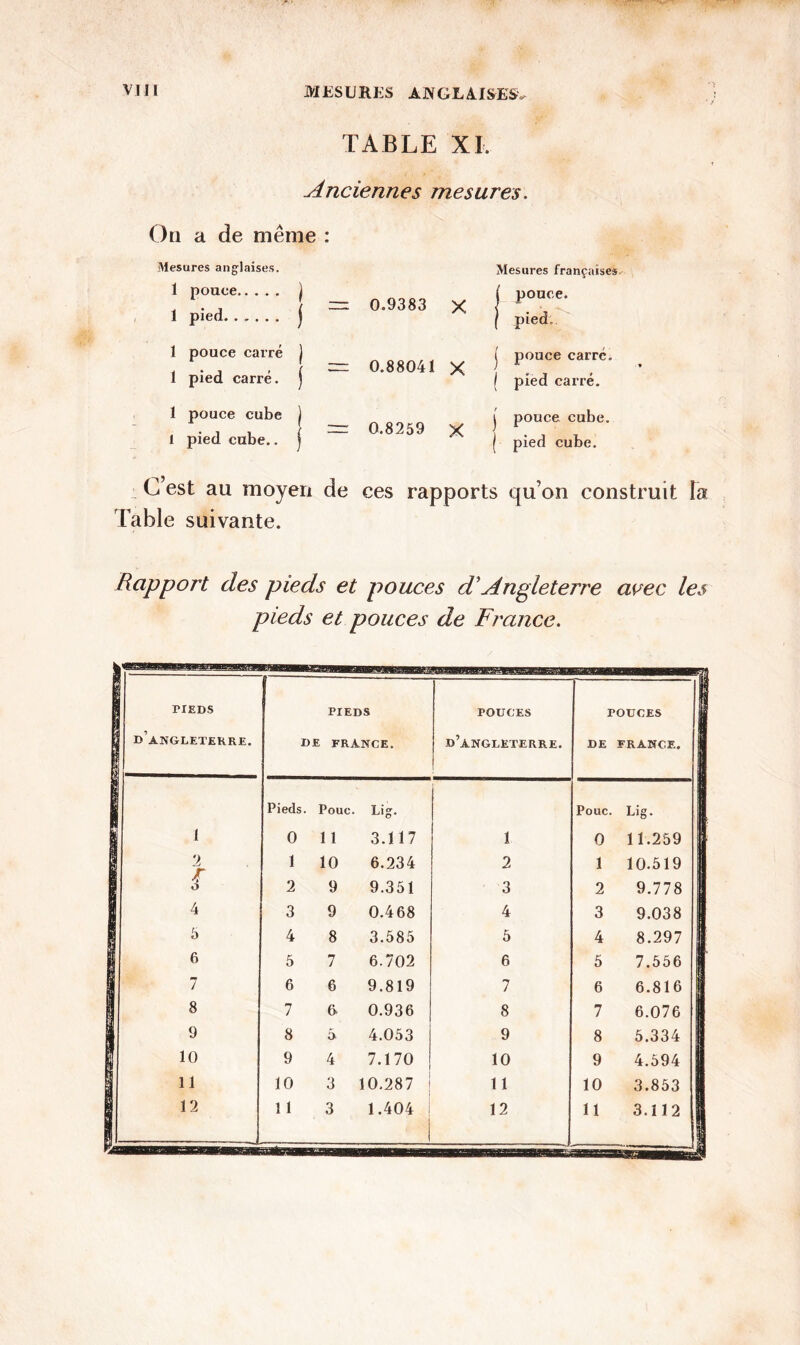 VIII MESURES ANGLAISES.
TABLE XI.
Anciennes mesures.
On a de même :
Mesures anglaises. Mesures françaises.
1 pouce..... } = 0.9383 X { pouce.
1 pied...... } { pied.
1 pouce carré } = 0.88041 X { pouce carré.
1 pied carré. } { pied carré.
1 pouce cube } = 0.8259 X { pouce cube.
1 pied cube.. } { pied cube.
C'est au moyen de ces rapports qu'on construit la
Table suivante.
Rapport des pieds et pouces d'Angleterre avec les
pieds et pouces de France.
PIEDS PIEDS POUCES POUCES
D'ANGLETERRE. DE FRANCE. D'ANGLETERRE. DE FRANCE.
Pieds. Pouc. Lig. Pouc. Lig.
1 0 11 3.117 1 0 11.259
2 1 10 6.234 2 1 10.519
3 2 9 9.351 3 2 9.778
4 3 9 0.468 4 3 9.038
5 4 8 3.585 5 4 8.297
6 5 7 6.702 6 5 7.556
7 6 6 9.819 7 6 6.816
8 7 6 0.936 8 7 6.076
9 8 5 4.053 9 8 5.334
10 9 4 7.170 10 9 4.594
11 10 3 10.287 11 10 3.853
12 11 3 1.404 12 11 3.112